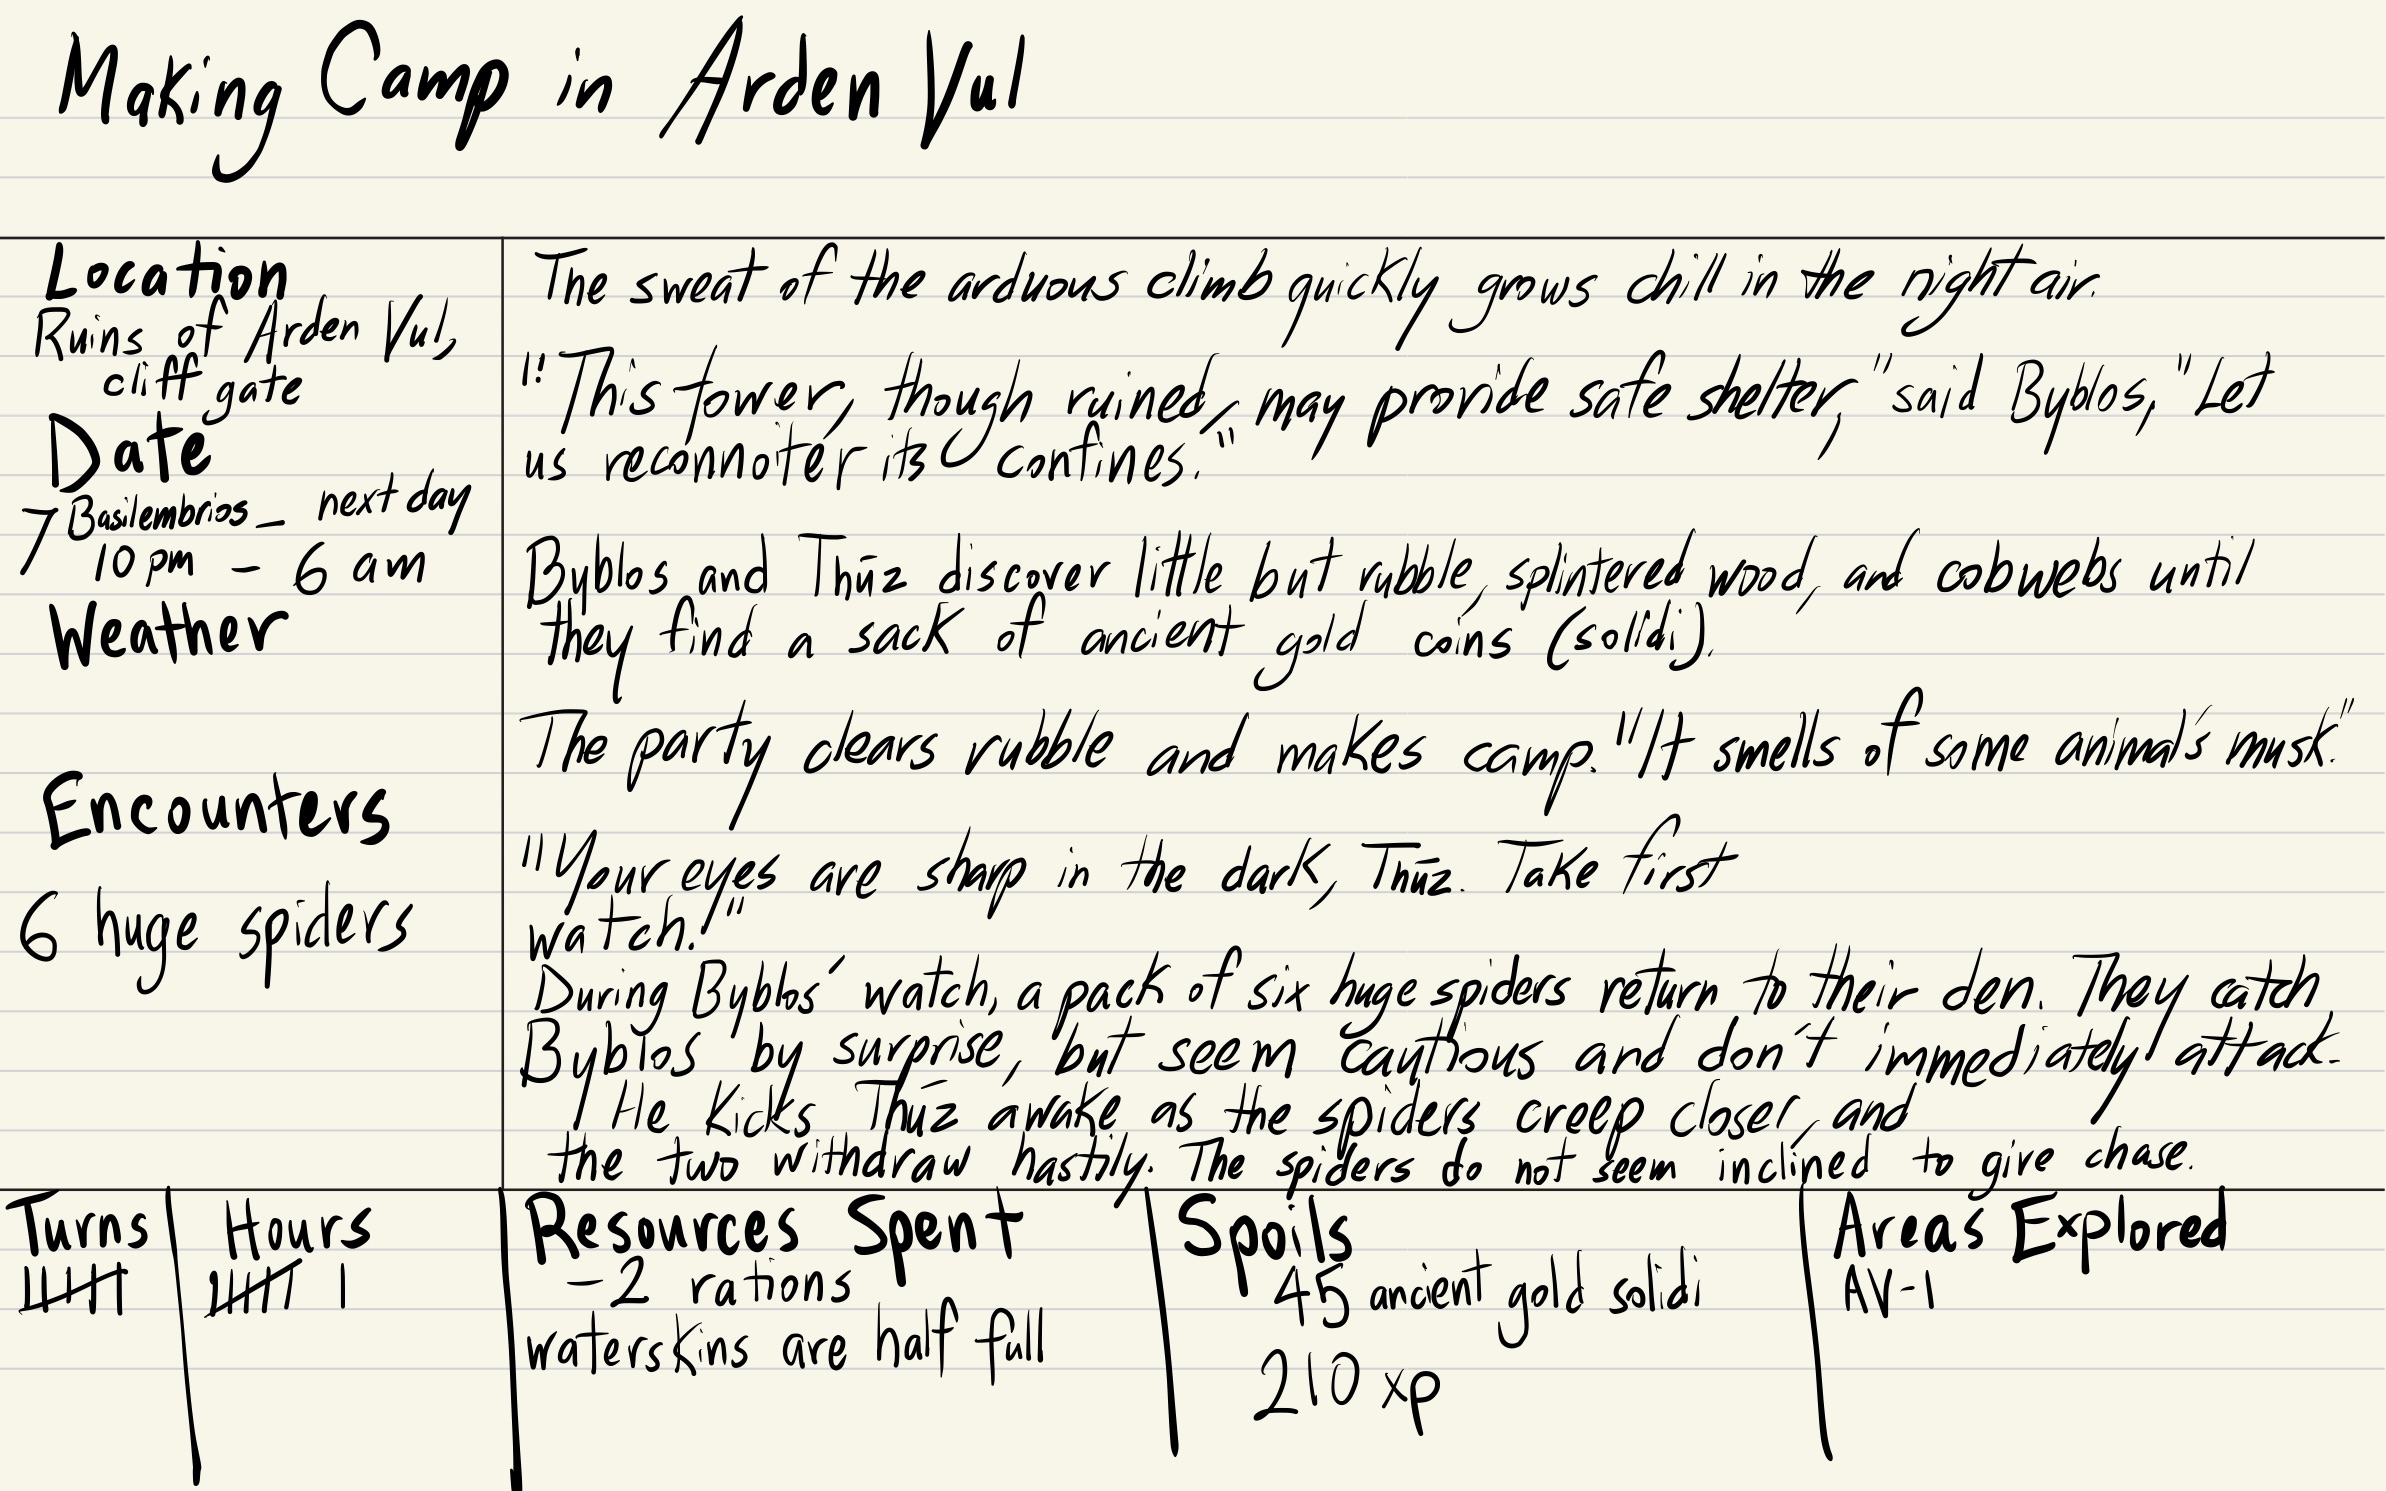 Making Camp in Arden Vul
Location
Ruins of Arden Vul,
cliff gate
Date
7 Basilembrios – next day
10 pm – 6 am
Weather
Encounters
6 huge spiders
The sweat of the arduous climb quickly grows chill in the night air.
"This tower, though ruined, may provide safe shelter," said Byblos, "Let
us reconnoiter its confines."
Byblos and Thūz discover little but rubble, splintered wood, and cobwebs until
they find a sack of ancient gold coins (solidi).
The party clears rubble and makes camp. "It smells of some animal's musk."
"Your eyes are sharp in the dark, Thūz. Take first
watch."
During Byblos' watch, a pack of six huge spiders return to their den. They catch
Byblos by surprise, but seem cautious and don't immediately attack.
He kicks Thūz awake as the spiders creep closer, and
the two withdraw hastily. The spiders do not seem inclined to give chase.
Turns
Hours
1
Resources Spent
-2 rations
waterskins are half full
Spoils
45 ancient gold solidi
210 xp
Areas Explored
AV-1